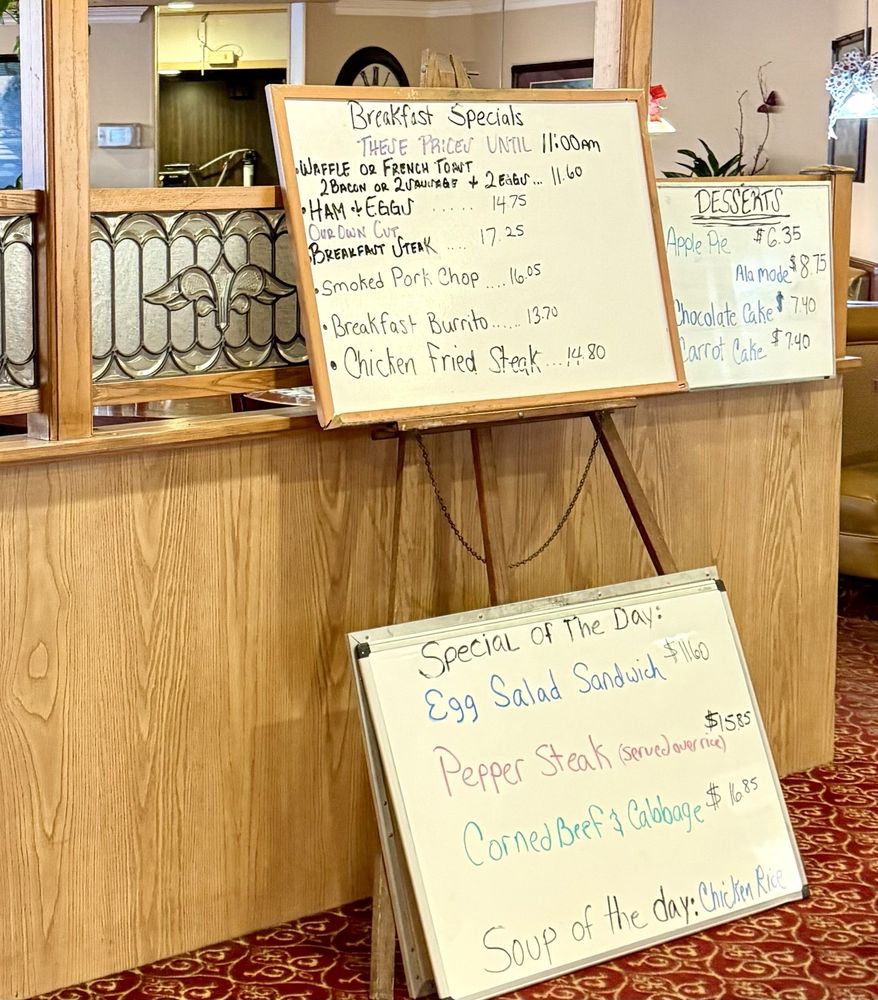 Breakfast Specials
THESE PRICES UNTIL 11:00am
•WAFFLE OR FRENCH TOAST
2BACON OR 2SAUSAGE + 2EGGS... 11.60
•HAM + EGGS ..... 14.75
OUR OWN CUT
BREAKFAST STEAK .... 17.25
•Smoked Pork Chop ....16.05
•Breakfast Burrito...... 13.70
•Chicken Fried Steak...14.80
DESSERTS
Apple Pie $6.35
Ala mode $8.75
Chocolate Cake $7.40
Carrot Cake $7.40
Special of The Day:
Egg Salad Sandwich $11.60
Pepper Steak (served over rice) $15.85
Corned Beef & Cabbage $16.85
Soup of the day: Chicken Rice